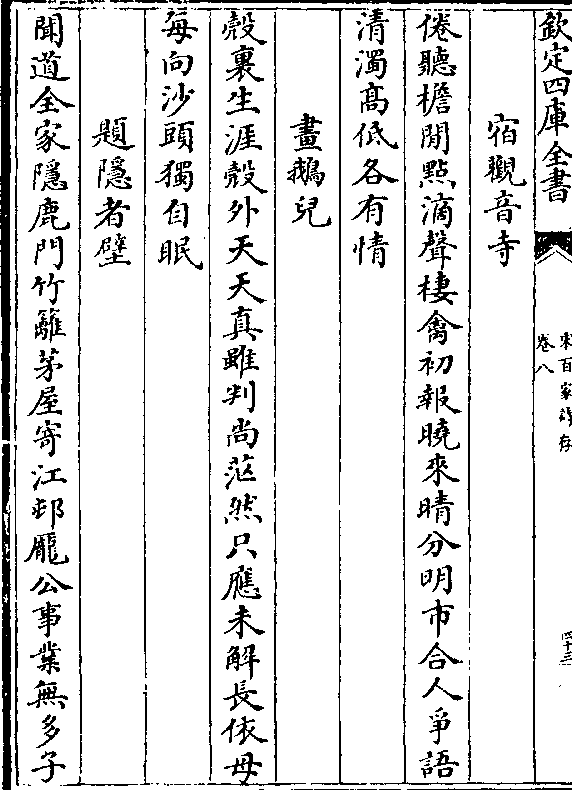 欽定四庫全書
宋百家詩存
卷八
四十三
宿觀音寺
倦聽檐間點滴聲棲禽初報曉來晴分明市合人爭語
清濁髙低各有情
畫鵝兒
殻裏生涯殻外天天真雖判尚茫然只應未解長依母
每向沙頭獨自眠
題隱者壁
聞道全家隱鹿門竹籬茅屋寄江邨龎公事業無多子